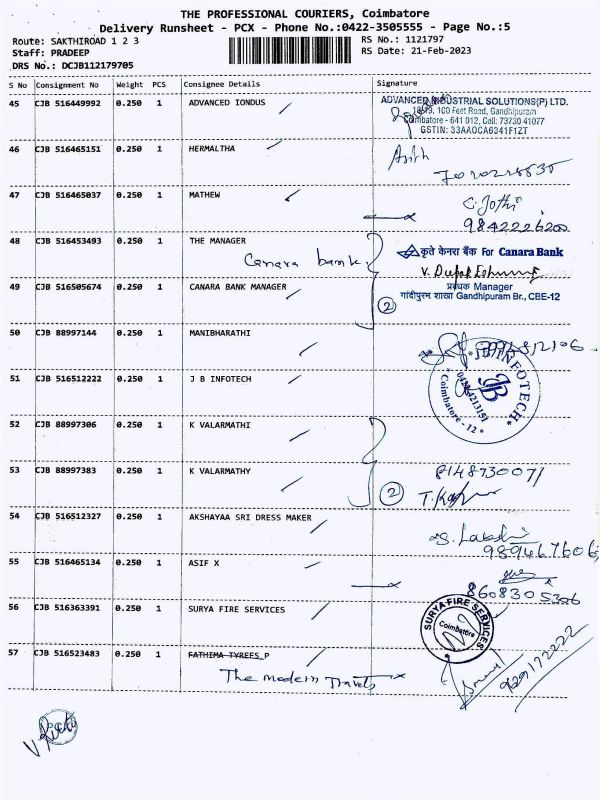 THE PROFESSIONAL COURIERS, Coimbatore
Delivery Runsheet - PCX - Phone No.:0422-3505555 - Page No.:5
Route: SAKTHIROAD 1 2 3
RS No.: 1121797
Staff: PRADEEP
RS Date: 21-Feb-2023
DRS No.: DCJB112179705
S No Consignment No Weight PCS Consignee Details Signature
45 CJB 516449992 0.250 1 ADVANCED IONDUS
ADVANCED INDUSTRIAL SOLUTIONS(P) LTD.
100 Feet Road, Gandhipuram
Coimbatore - 641 012, Cell: 73730 41077
GSTIN: 33AAOCA6341F1ZT
46 CJB 516465151 0.250 1 HERMALTHA
47 CJB 516465037 0.250 1 MATHEW
C. Jothi
9842226200
48 CJB 516453493 0.250 1 THE MANAGER
Canara bank
कृते केनरा बैंक For Canara Bank
49 CJB 516505674 0.250 1 CANARA BANK MANAGER
2
प्रबंधक Manager
गांदीपुरम शाखा Gandhipuram Br., CBE-12
50 CJB 88997144 0.250 1 MANIBHARATHI
51 CJB 516512222 0.250 1 J B INFOTECH
JB INFOTECH
JB
Coimbatore - 12
52 CJB 88997306 0.250 1 K VALARMATHI
53 CJB 88997383 0.250 1 K VALARMATHY
2
8148730071
54 CJB 516512327 0.250 1 AKSHAYAA SRI DRESS MAKER
55 CJB 516465134 0.250 1 ASIF X
8608305306
56 CJB 516363391 0.250 1 SURYA FIRE SERVICES
SURYA FIRE SERVICES
Coimbatore
57 CJB 516523483 0.250 1 FATHIMA TYREES P
The modern Travels